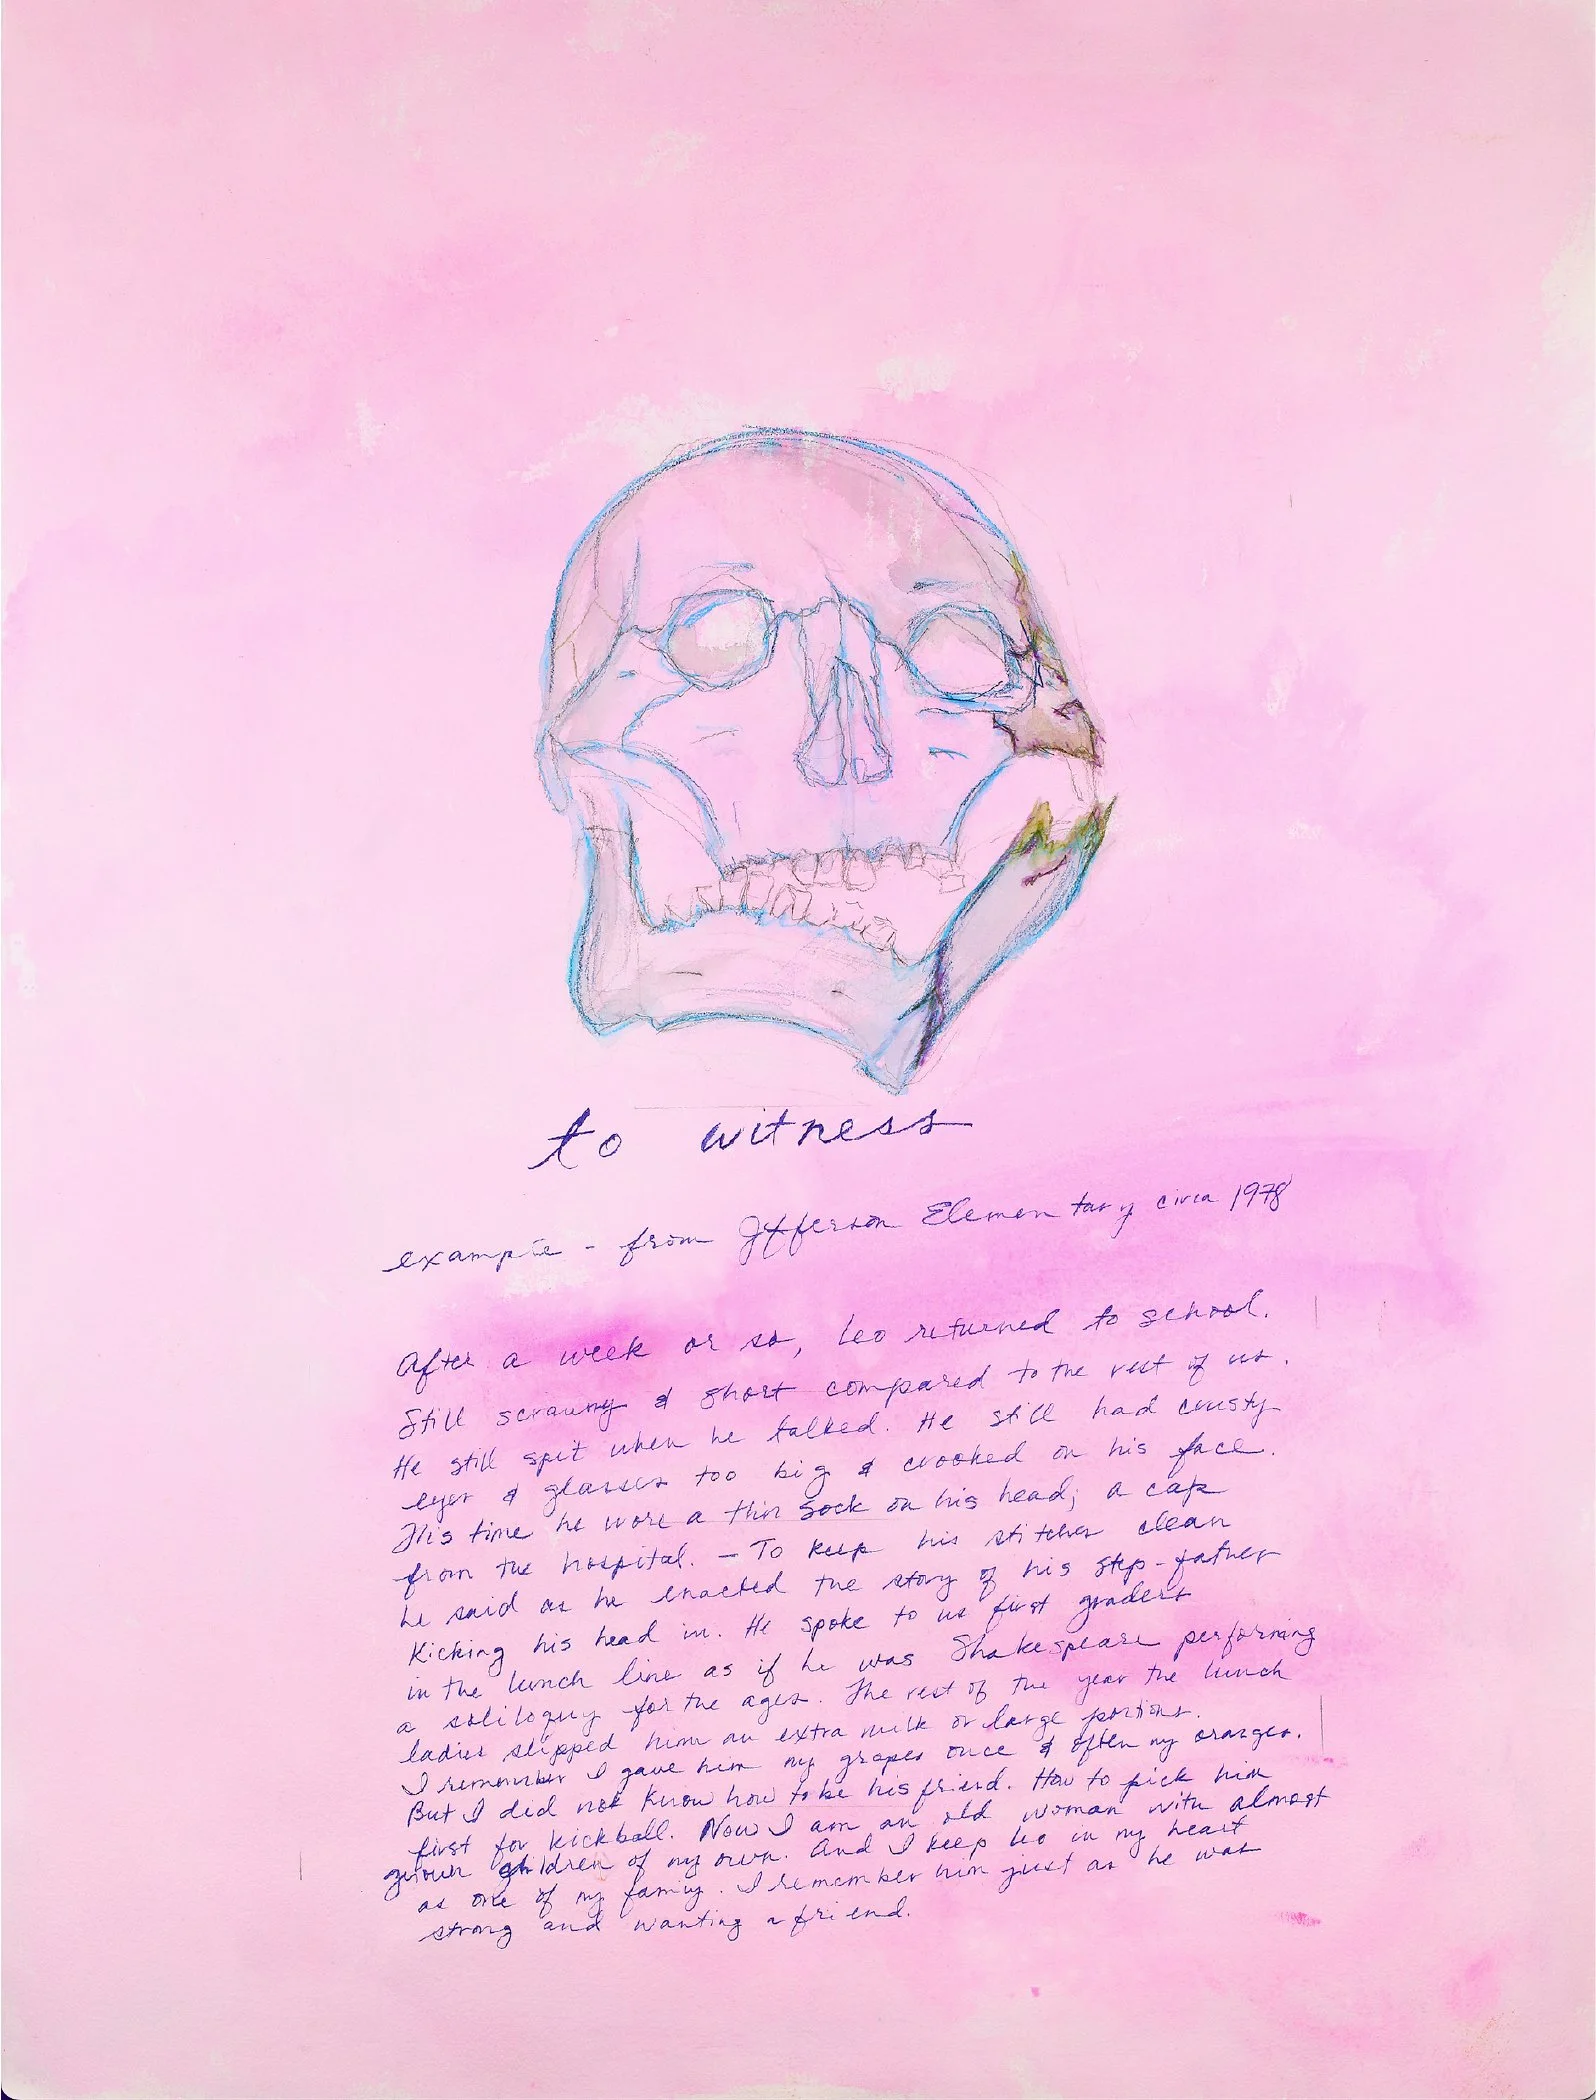 to witness
example - from Jefferson Elementary circa 1978
After a week or so, Leo returned to school.
Still scrawny & short compared to the rest of us.
He still spit when he talked. He still had crusty
eyes & glasses too big & crooked on his face.
This time he wore a thin sock on his head; a cap
from the hospital. - To keep his stitches clean
he said as he enacted the story of his step-father
Kicking his head in. He spoke to us first graders
in the lunch line as if he was Shakespeare performing
a soliloquy for the ages. The rest of the year the lunch
ladies slipped him an extra milk or large portions.
I remember I gave him my grapes once & often my oranges.
But I did not know how to be his friend. How to pick him
first for kickball. Now I am an old woman with almost
grown children of my own. And I keep Leo in my heart
as one of my family. I remember him just as he was
strong and wanting a friend.